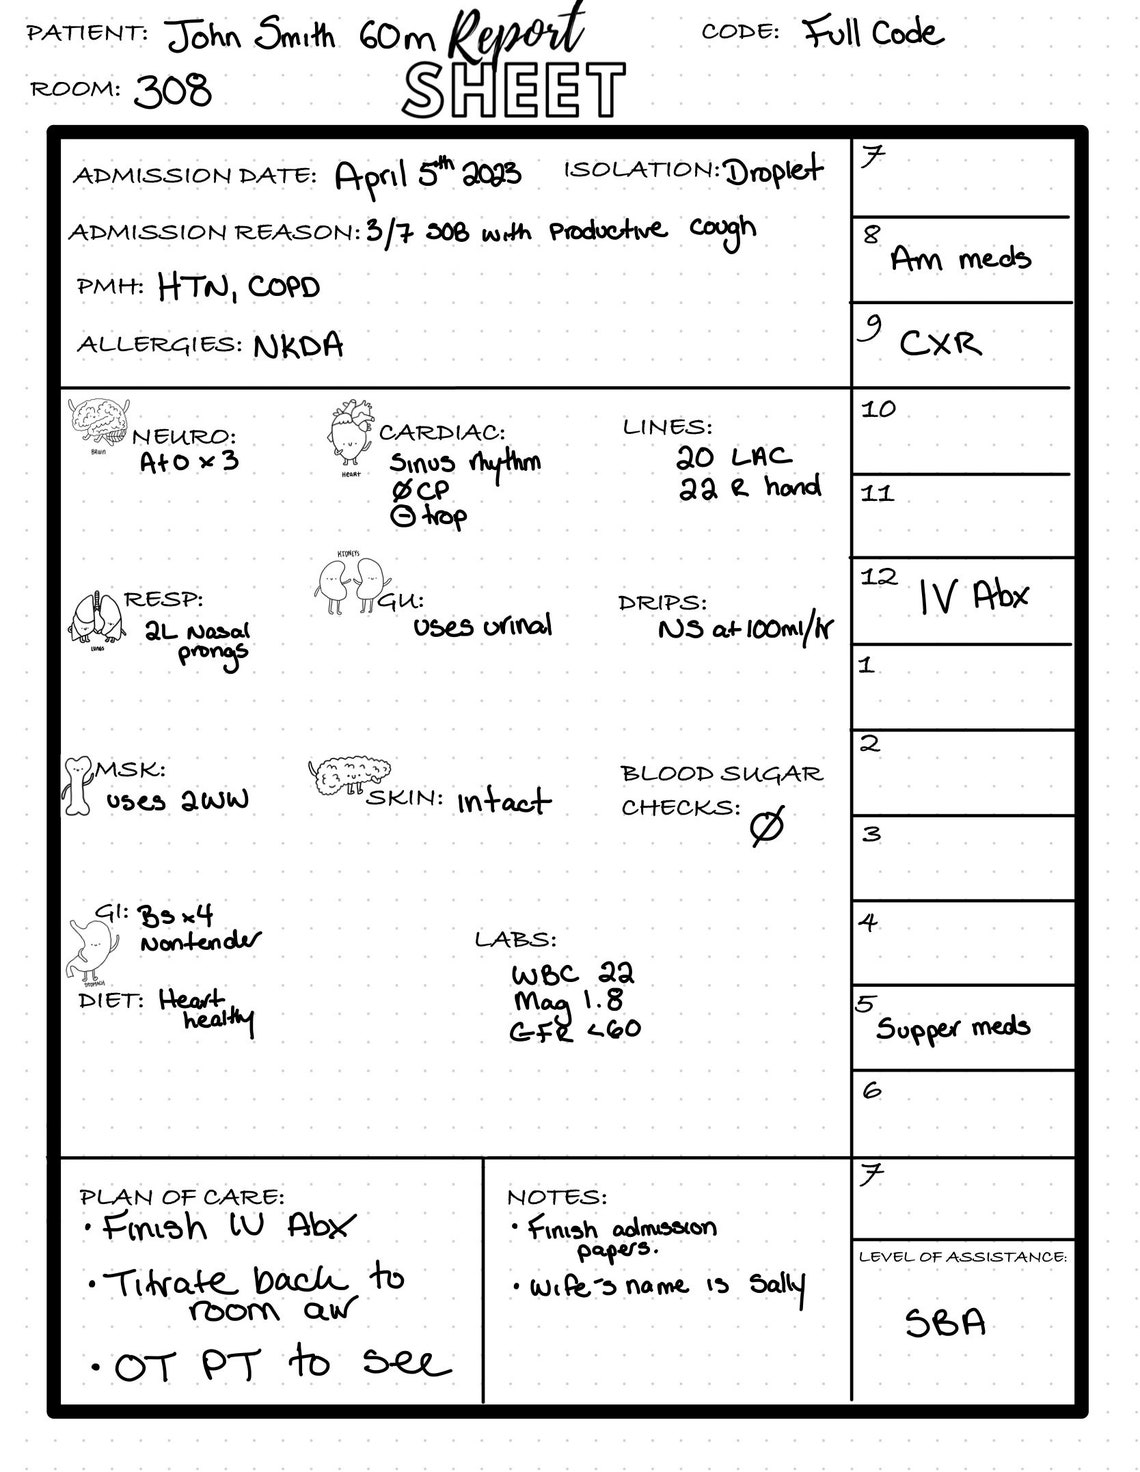 PATIENT: John Smith 60m Report CODE: Full Code
ROOM: 308 SHEET
ADMISSION DATE: April 5th 2023 ISOLATION: Droplet
ADMISSION REASON: 3/7 SOB with Productive Cough
PMH: HTN, COPD
ALLERGIES: NKDA
Brain
NEURO:
A+O x 3
Heart
CARDIAC:
Sinus rhythm
Ø CP
⊖ trop
LINES:
20 LAC
22 R hand
Lungs
RESP:
2L Nasal
prongs
Kidneys
GU:
uses urinal
DRIPS:
NS at 100ml/hr
MSK:
uses 2WW
SKIN: intact
BLOOD SUGAR
CHECKS: Ø
GI: BS x4
Nontender
Stomach
DIET: Heart
healthy
LABS:
WBC 22
Mag 1.8
GFR <60
7
8
Am meds
9
CXR
10
11
12
IV Abx
1
2
3
4
5
Supper meds
6
7
PLAN OF CARE:
• Finish IV Abx
• Titrate back to
room air
• OT PT to see
NOTES:
• Finish admission
papers.
• Wife's name is Sally
LEVEL OF ASSISTANCE:
SBA